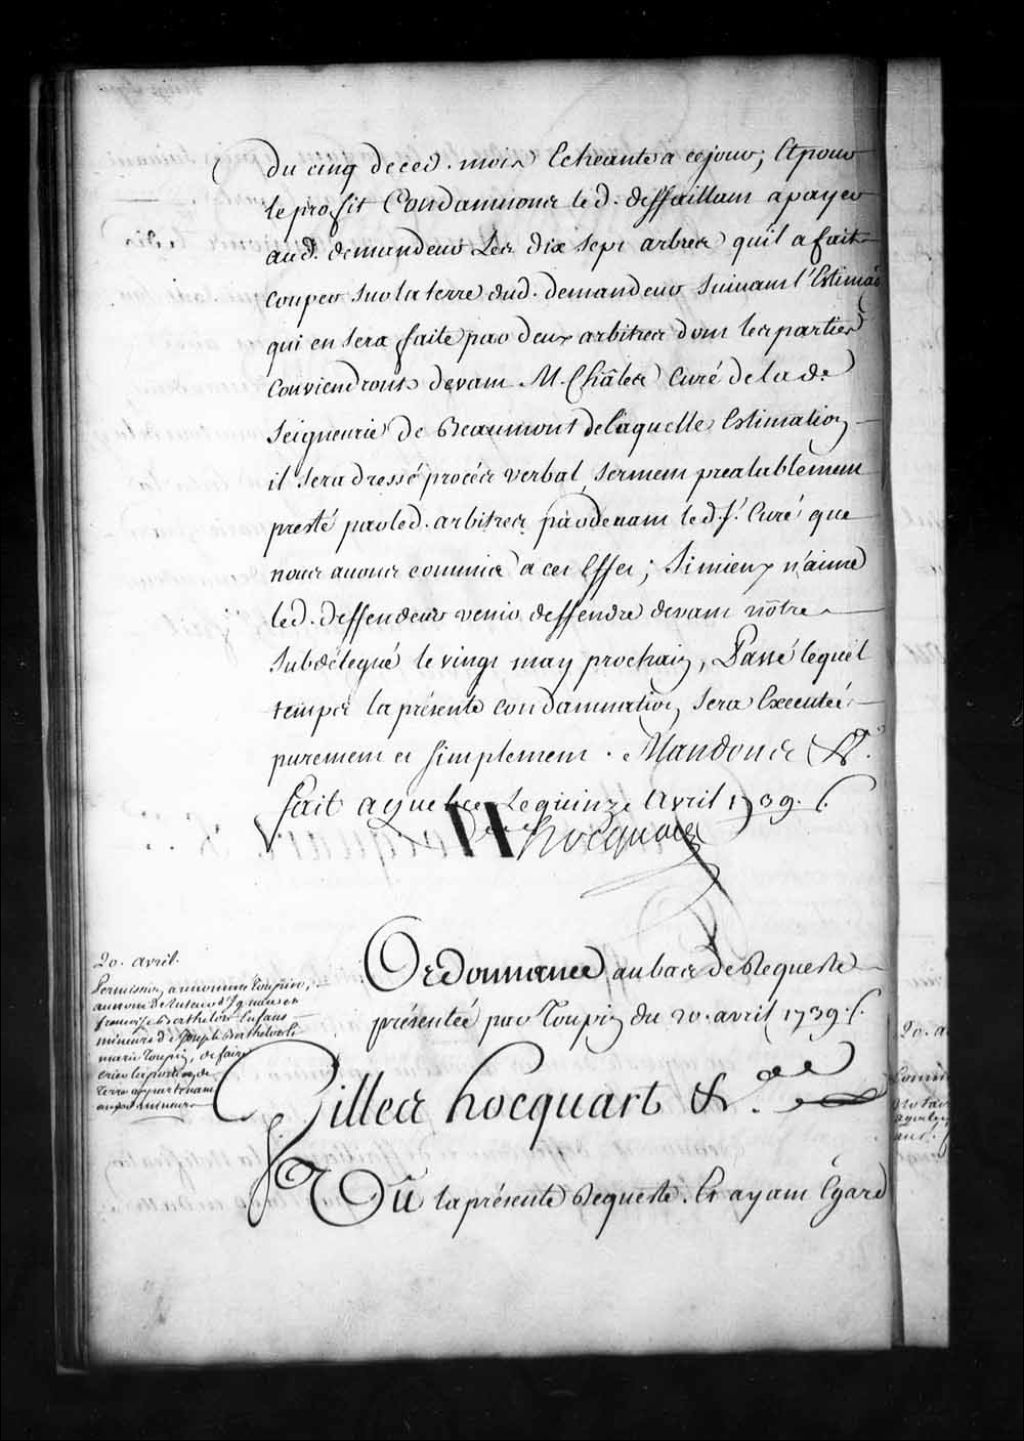 du cinq de ced. mois Echeante a cejour; Et pour
le profit Condamnons led. deffaillant a payer
aud. demandeur Les dix sept arbres qu'il a fait
couper sur la terre dud. demandeur suivant l'Estimaõn
qui en sera faite par deux arbitres dont les parties
conviendront devant M. Châles Curé de lad.e
Seigneurie de Beaumont de laquelle Estimation
il sera dressé procés verbal, serment prealablement
presté par led. arbitres pardevant led. s.r Curé que
nous avons commis a cet Effet; Si mieux n'aime
led. deffendeur venir deffendre devant nôtre
Subdélegué le vingt may prochain, Passé lequel
temps la présente condamnation sera Executée
purement et simplement. Mandons &.a
fait a quebec Le quinze Avril 1739.
Hocquart
20. avril.
Permission a
au nom de Tuteur d'Ignace et
françois Berthelot Enfans
mineurs de Joseph Berthelot et
marie Toupin, de faire
crier les portions de
terre appartenant
auxd. mineurs
Ordonnance au bas de Requeste
présentée par Toupin du 20. avril 1739.
Gilles hocquart &.a
Vû la présente Requeste. Et ayant Egard
20. a